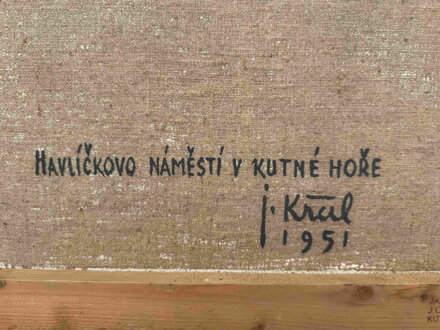 HAVLÍČKOVO NÁMĚSTÍ V KUTNÉ HOŘE
J. Král
1951